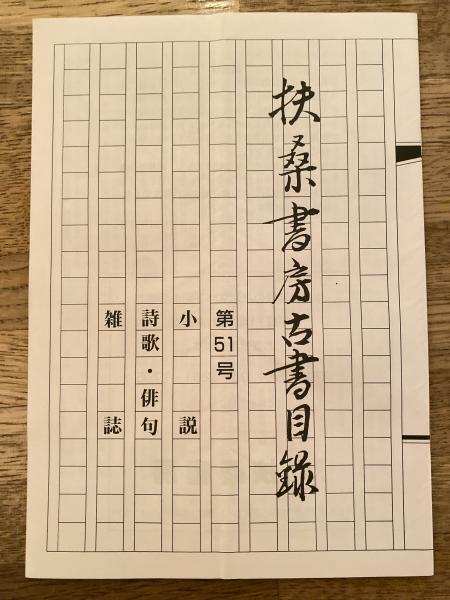 扶桑書房古書目録
第51号
小説
詩歌・俳句
雑誌